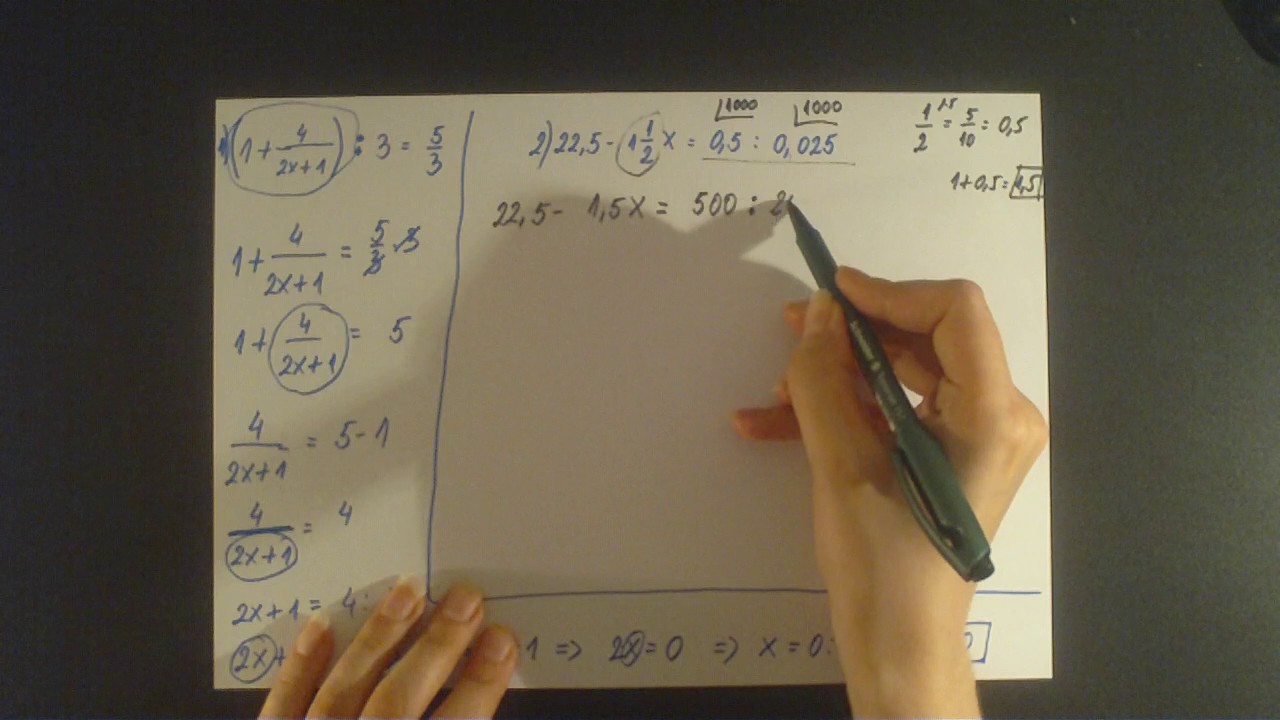 1) (1 + 4/(2x+1)) : 3 = 5/3
1 + 4/(2x+1) = 5/3 · 3
1 + 4/(2x+1) = 5
4/(2x+1) = 5 - 1
4/(2x+1) = 4
2x+1 = 4:
2x+ 1 => 2x = 0 => x = 0:
1000 1000
2) 22,5 - 1 1/2 x = 0,5 : 0,025
22,5 - 1,5x = 500 : 2
1/2 = 5/10 = 0,5
1+0,5 = 1,5